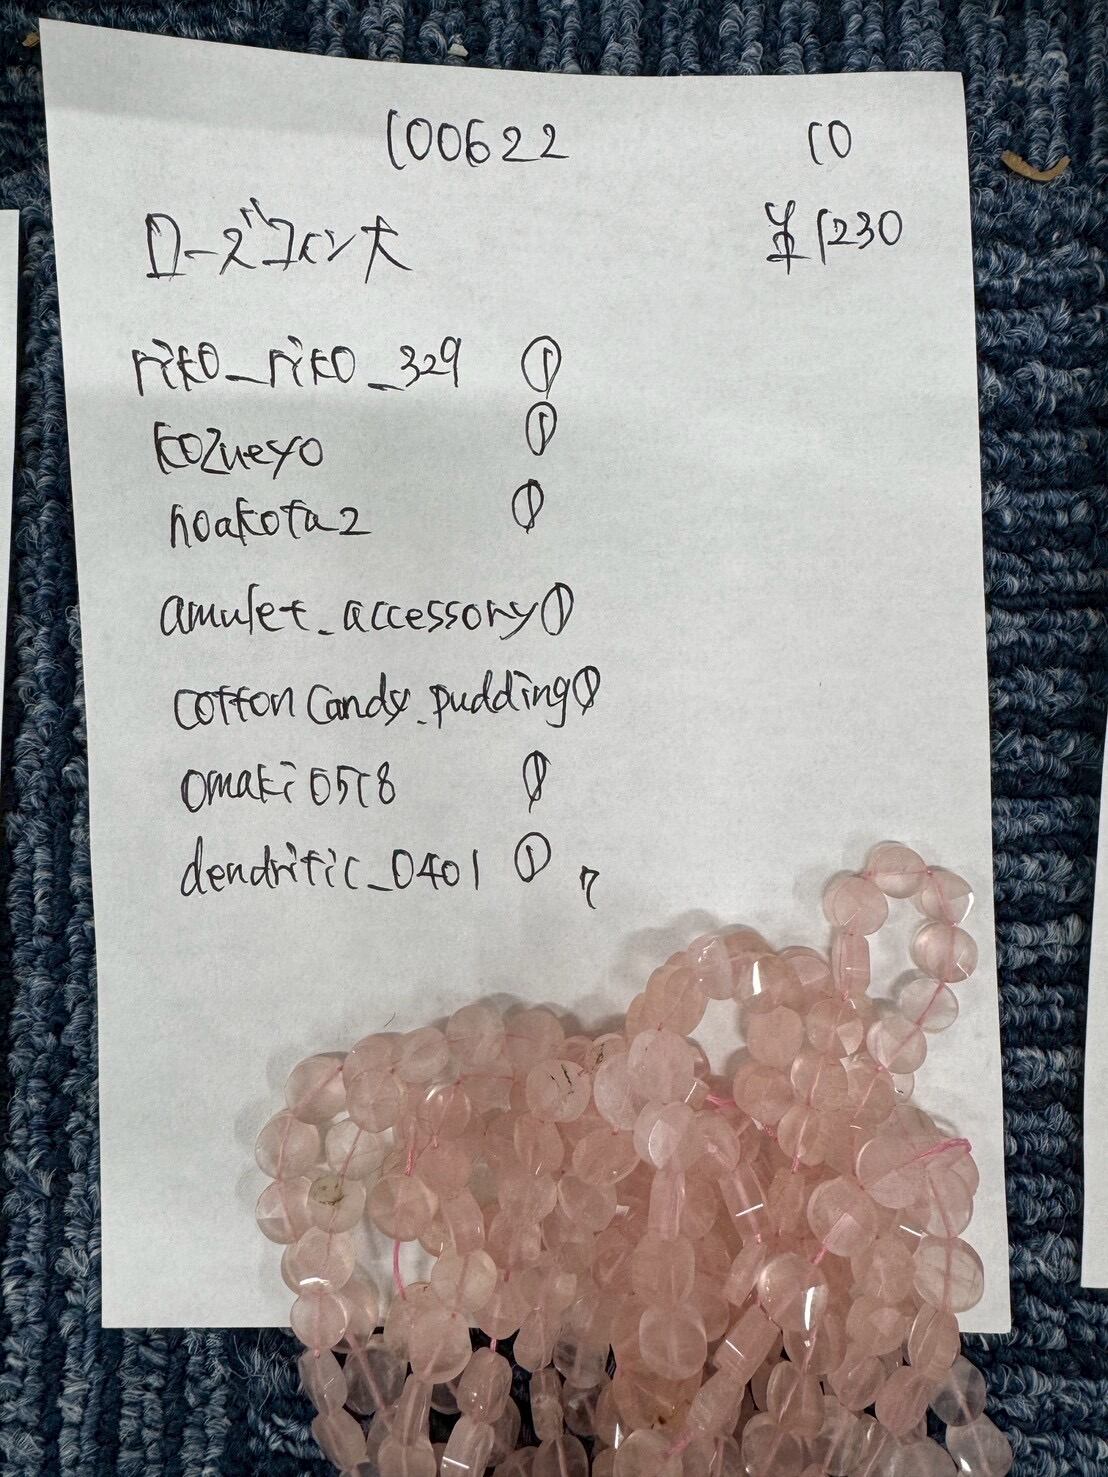 100622 10
ローズコイン大 単1230
riko_riko_329 ①
kozueyo ①
noakota2 ①
amulet_accessory ①
cottoncandy_pudding ①
omaki0518 ①
dendritic_0401 ① 7